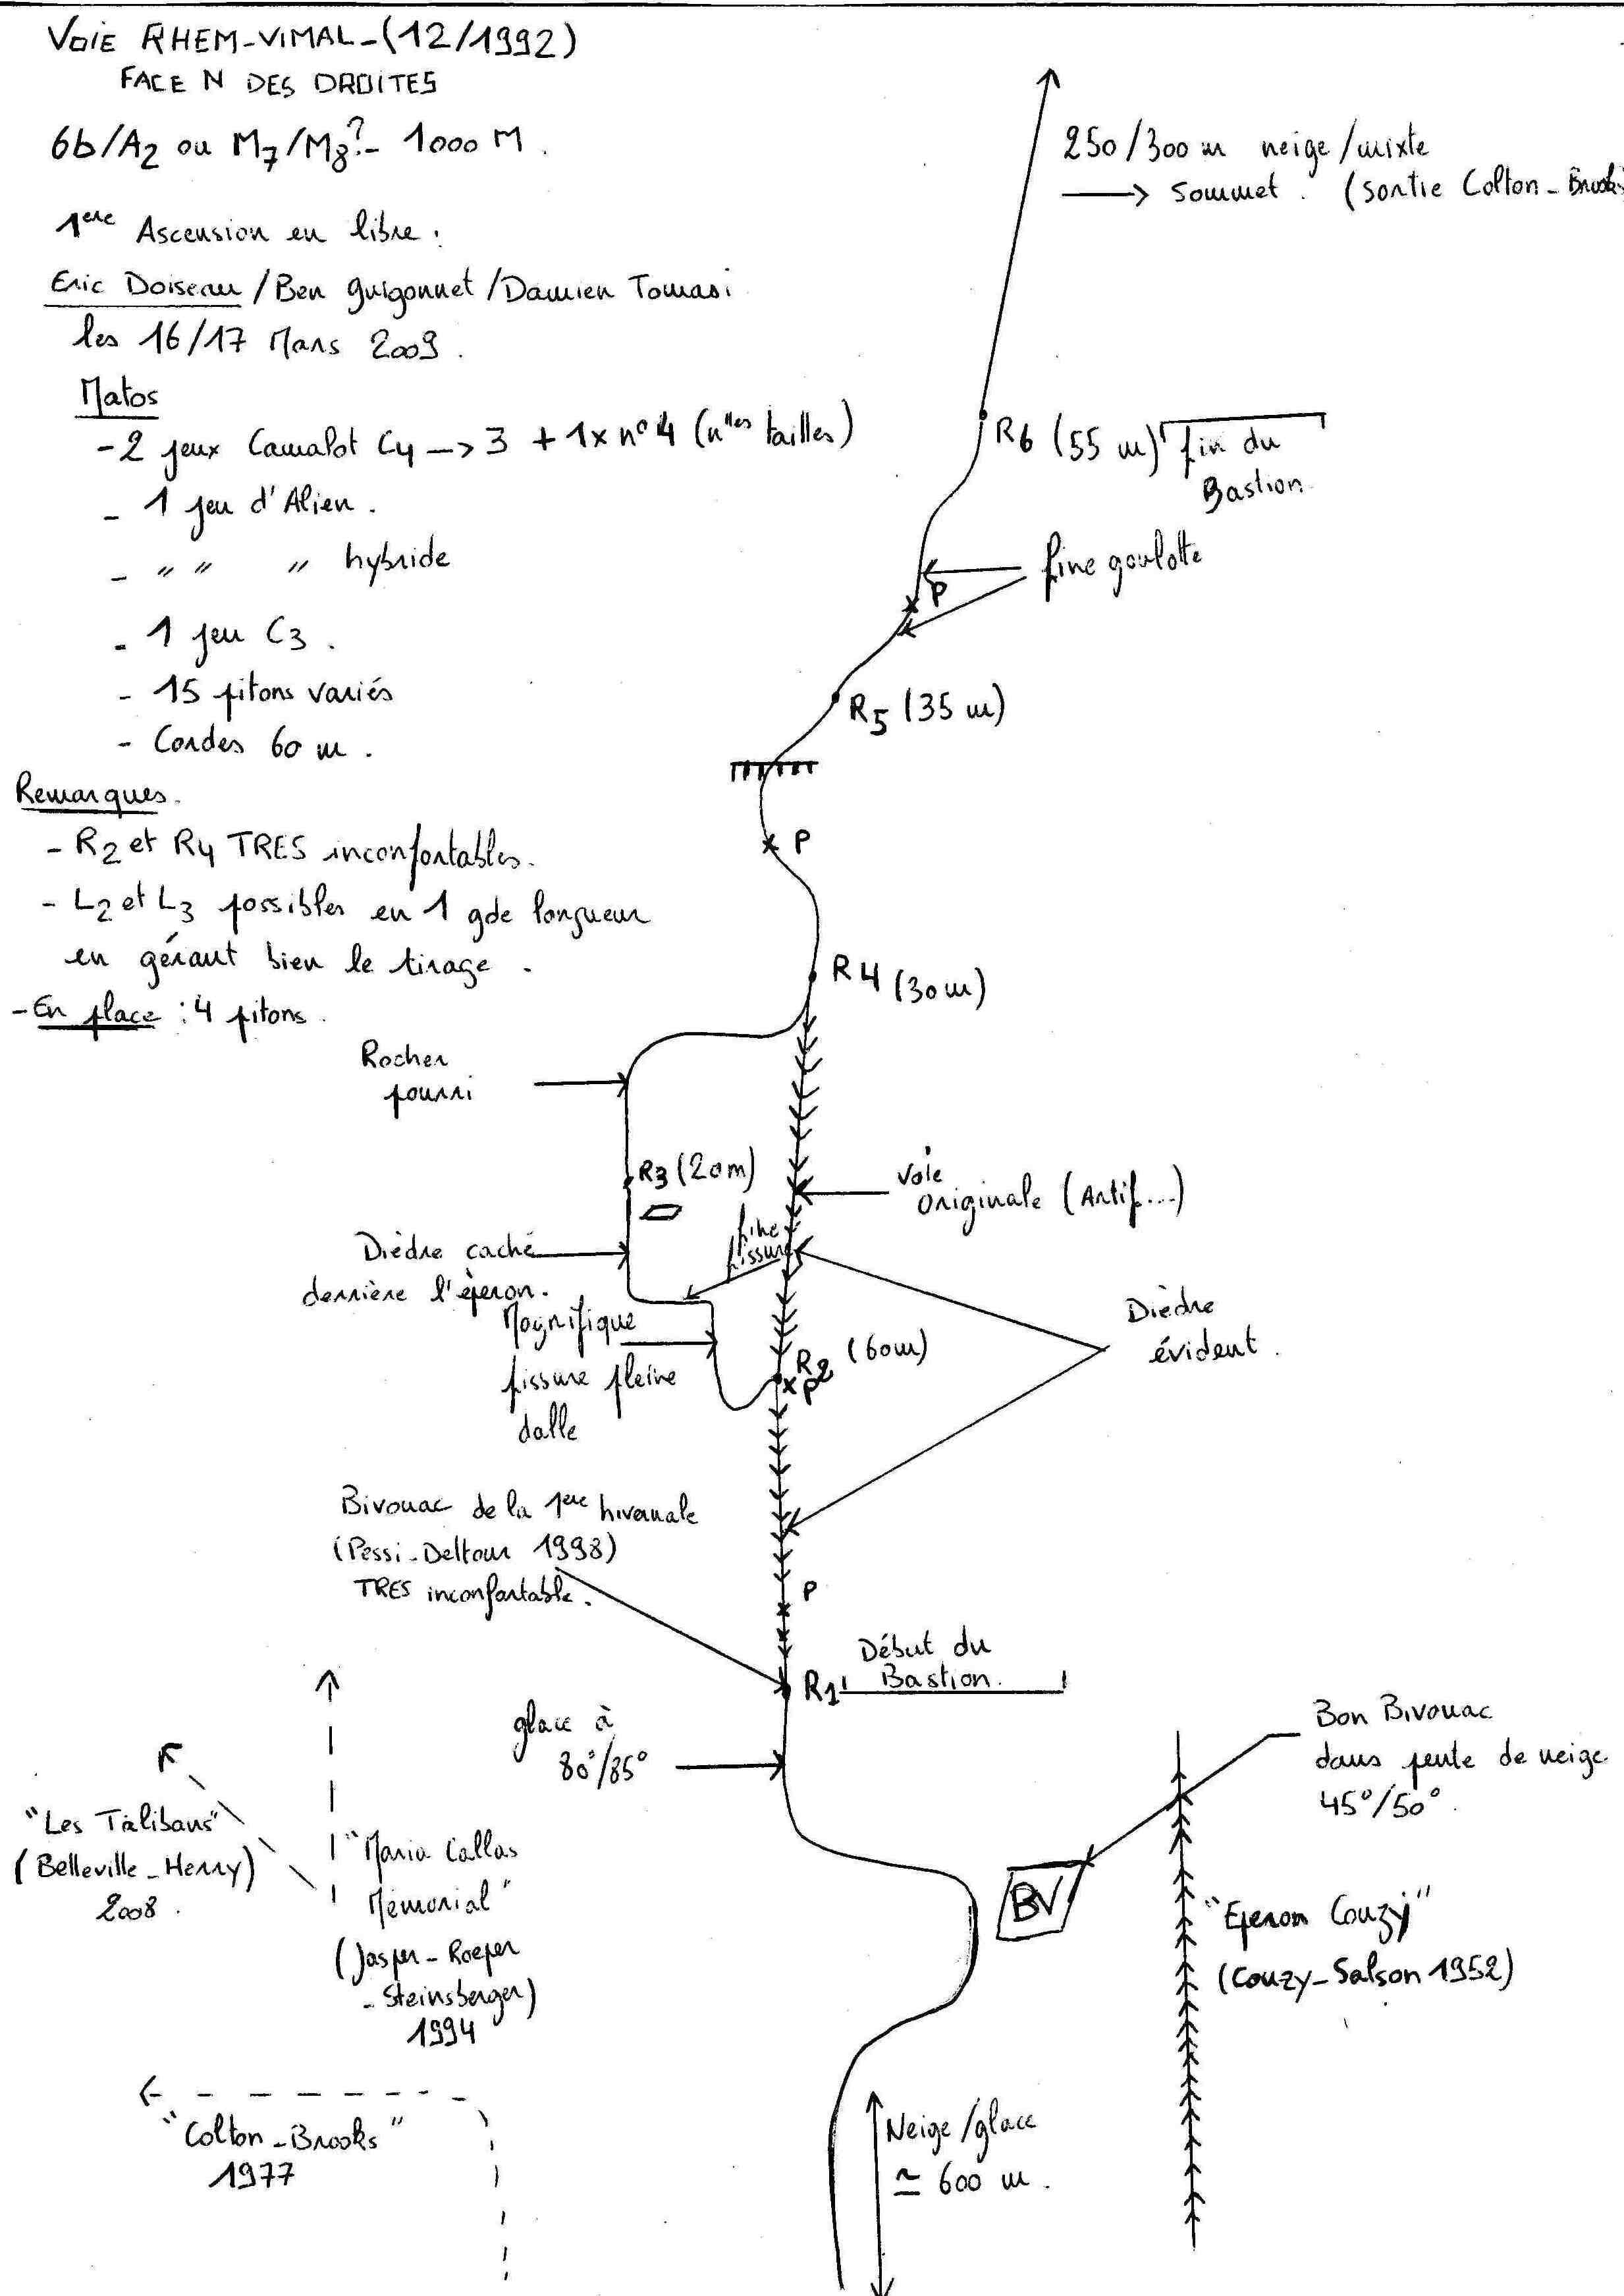 VOIE RHEM-VIMAL-(12/1992)
FACE N DES DROITES
6b/A2 ou M7/M8?- 1000 M.
1ere Ascension en libre :
Eric Doiseau / Ben guigonnet / Damien Tomasi
les 16/17 Mars 2009.
Matos
-2 jeux Camalot C4 -> 3 + 1x n°4 (nlles tailles)
- 1 jeu d'Alien.
- " " " hybride
- 1 jeu C3.
- 15 pitons variés
- Cordes 60 m.
Remarques.
- R2 et R4 TRES inconfortables.
- L2 et L3 possibles en 1 gde longueur
en gérant bien le tirage.
-En place : 4 pitons.
250/300 m neige/mixte
-> sommet. (sortie Colton-Brooks
R6 (55 m) fin du
Bastion
fine goulotte
P
R5 (35 m)
P
R4 (30m)
Rocher
pourri
R3 (20m)
voie
originale (Artif...)
fine
fissure
Dièdre caché
derrière l'éperon.
Magnifique
fissure pleine
dalle
Dièdre
évident.
R2 (60m)
P
Bivouac de la 1ere hivernale
(Pessi-Deltour 1998)
TRES inconfortable.
P
Début du
R1 Bastion.
glace à
80°/85°
Bon Bivouac
dans pente de neige
45°/50°.
BV
"Les Talibans"
(Belleville-Henry)
2008.
"Maria Callas
Memorial"
(Jasper-Roeper
-Steinsberger)
1994
"Eperon Couzy"
(Couzy-Salson 1952)
"Colton-Brooks"
1977
Neige/glace
≃ 600 m.